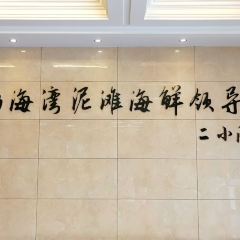 海湾泥滩海鲜领导
二小